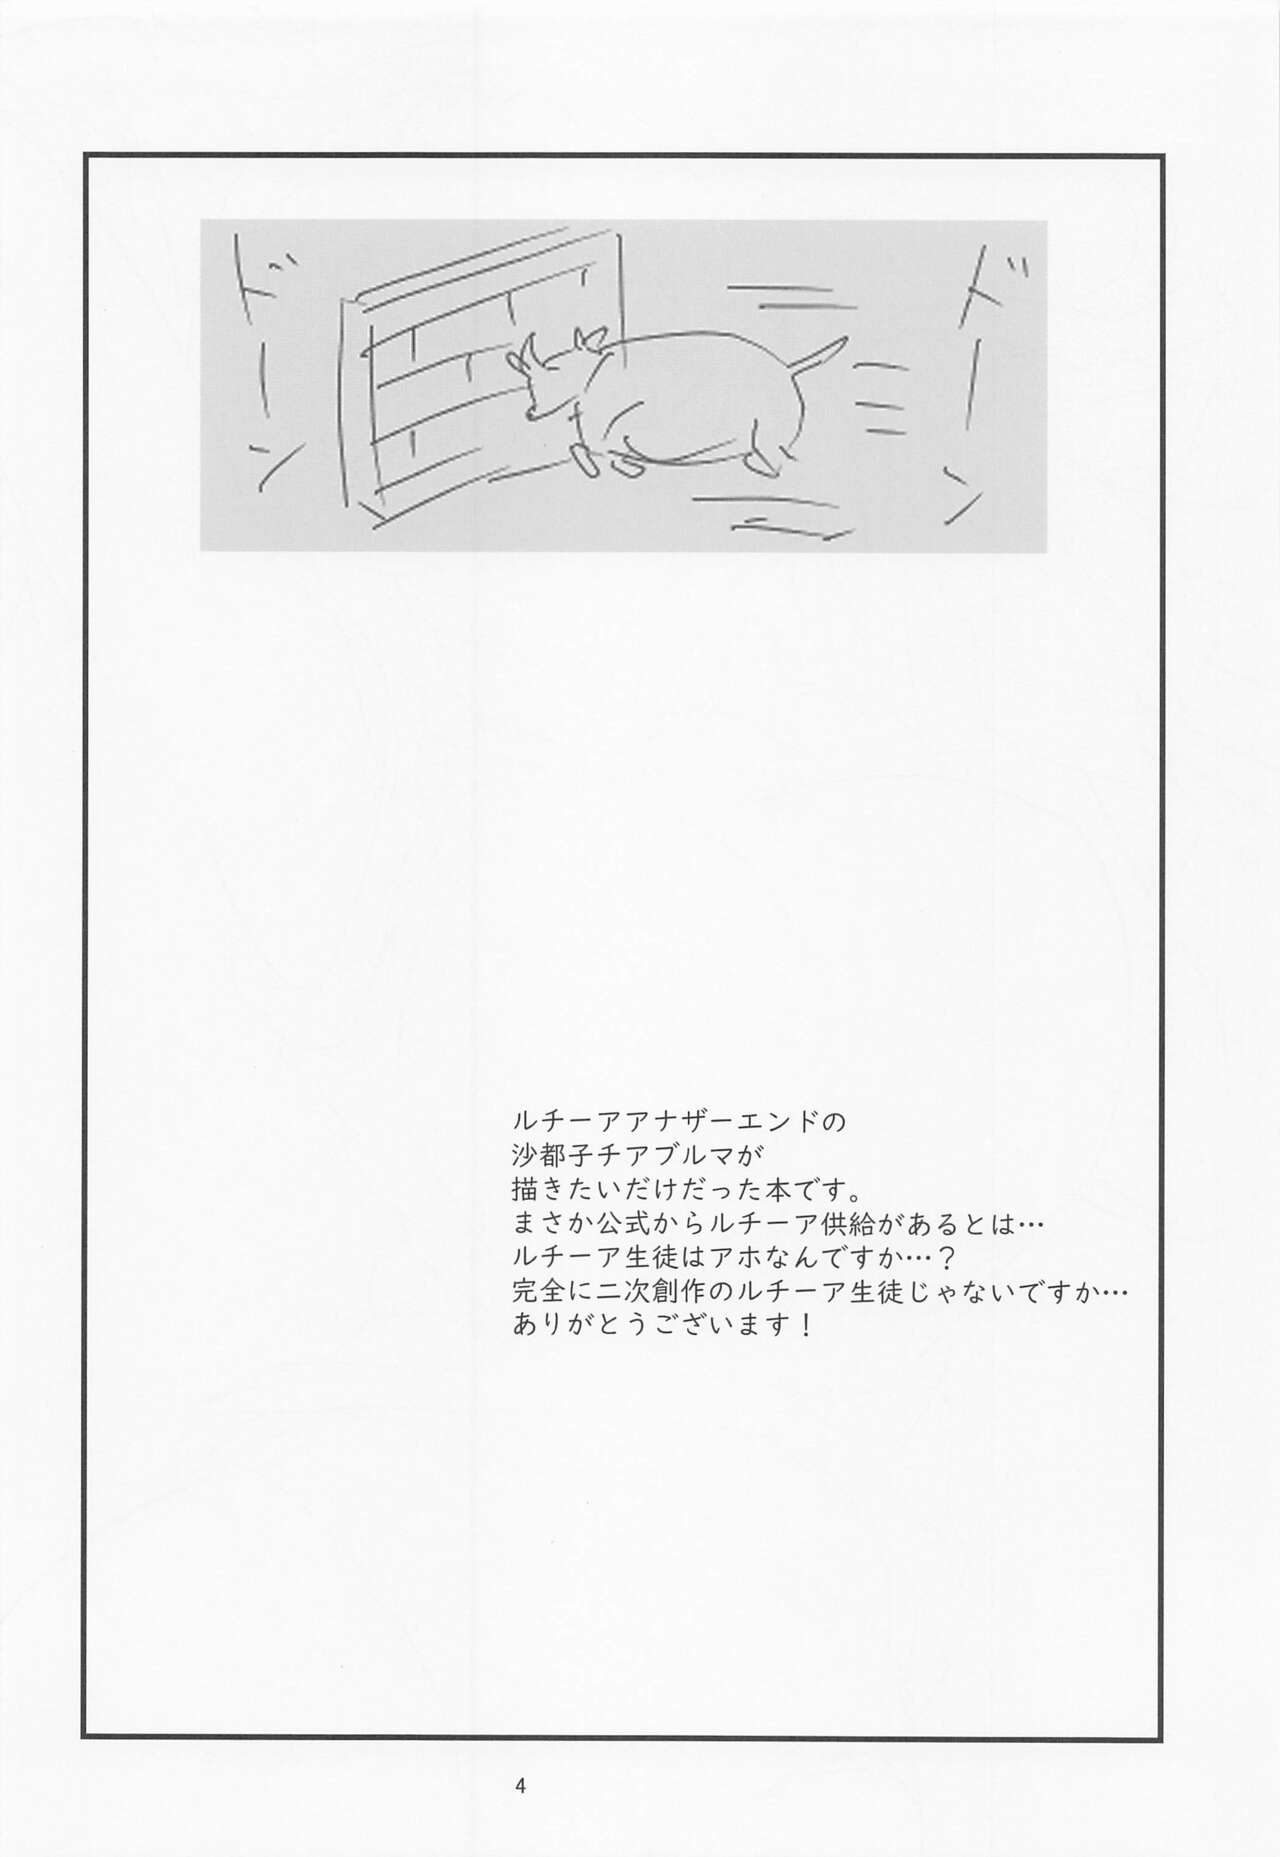 ドーン
ドーン
ルチーアアナザーエンドの
沙都子チアブルマが
描きたいだけだった本です。
まさか公式からルチーア供給があるとは…
ルチーア生徒はアホなんですか…？
完全に二次創作のルチーア生徒じゃないですか…
ありがとうございます！
4